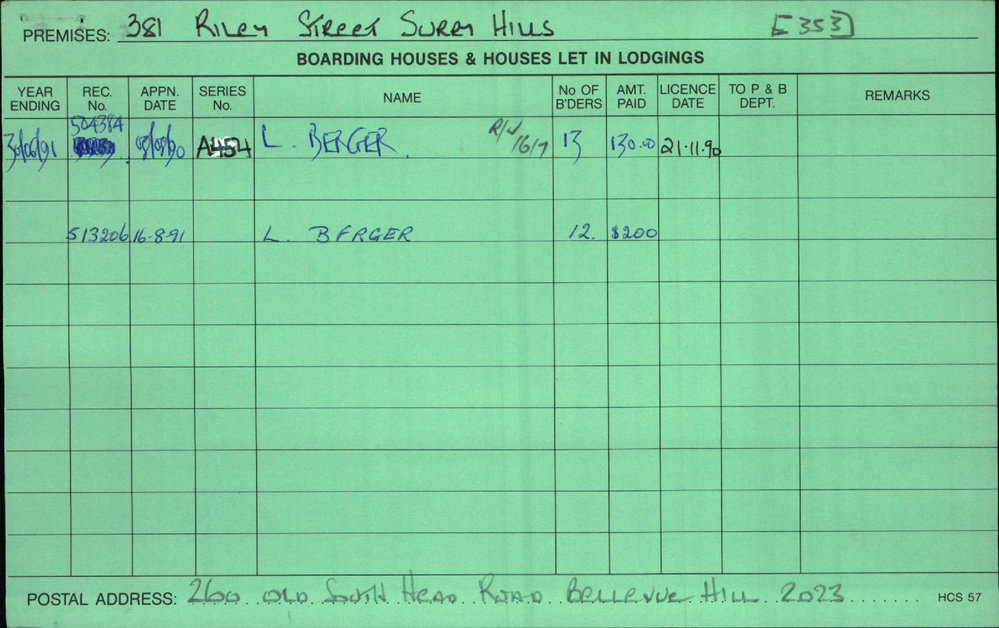 PREMISES: 381 Riley Street Surry Hills [353]
BOARDING HOUSES & HOUSES LET IN LODGINGS
YEAR ENDING REC. No. APPN. DATE SERIES No. NAME No OF B'DERS AMT. PAID LICENCE DATE TO P & B DEPT. REMARKS
504384
30/06/91 08/08/90 A454 L. BERGER. 16/7 13 130.00 21.11.90
513206 16-8-91 L. BERGER 12. $200
POSTAL ADDRESS: 260 Old South Head Road Bellevue Hill 2023 HCS 57